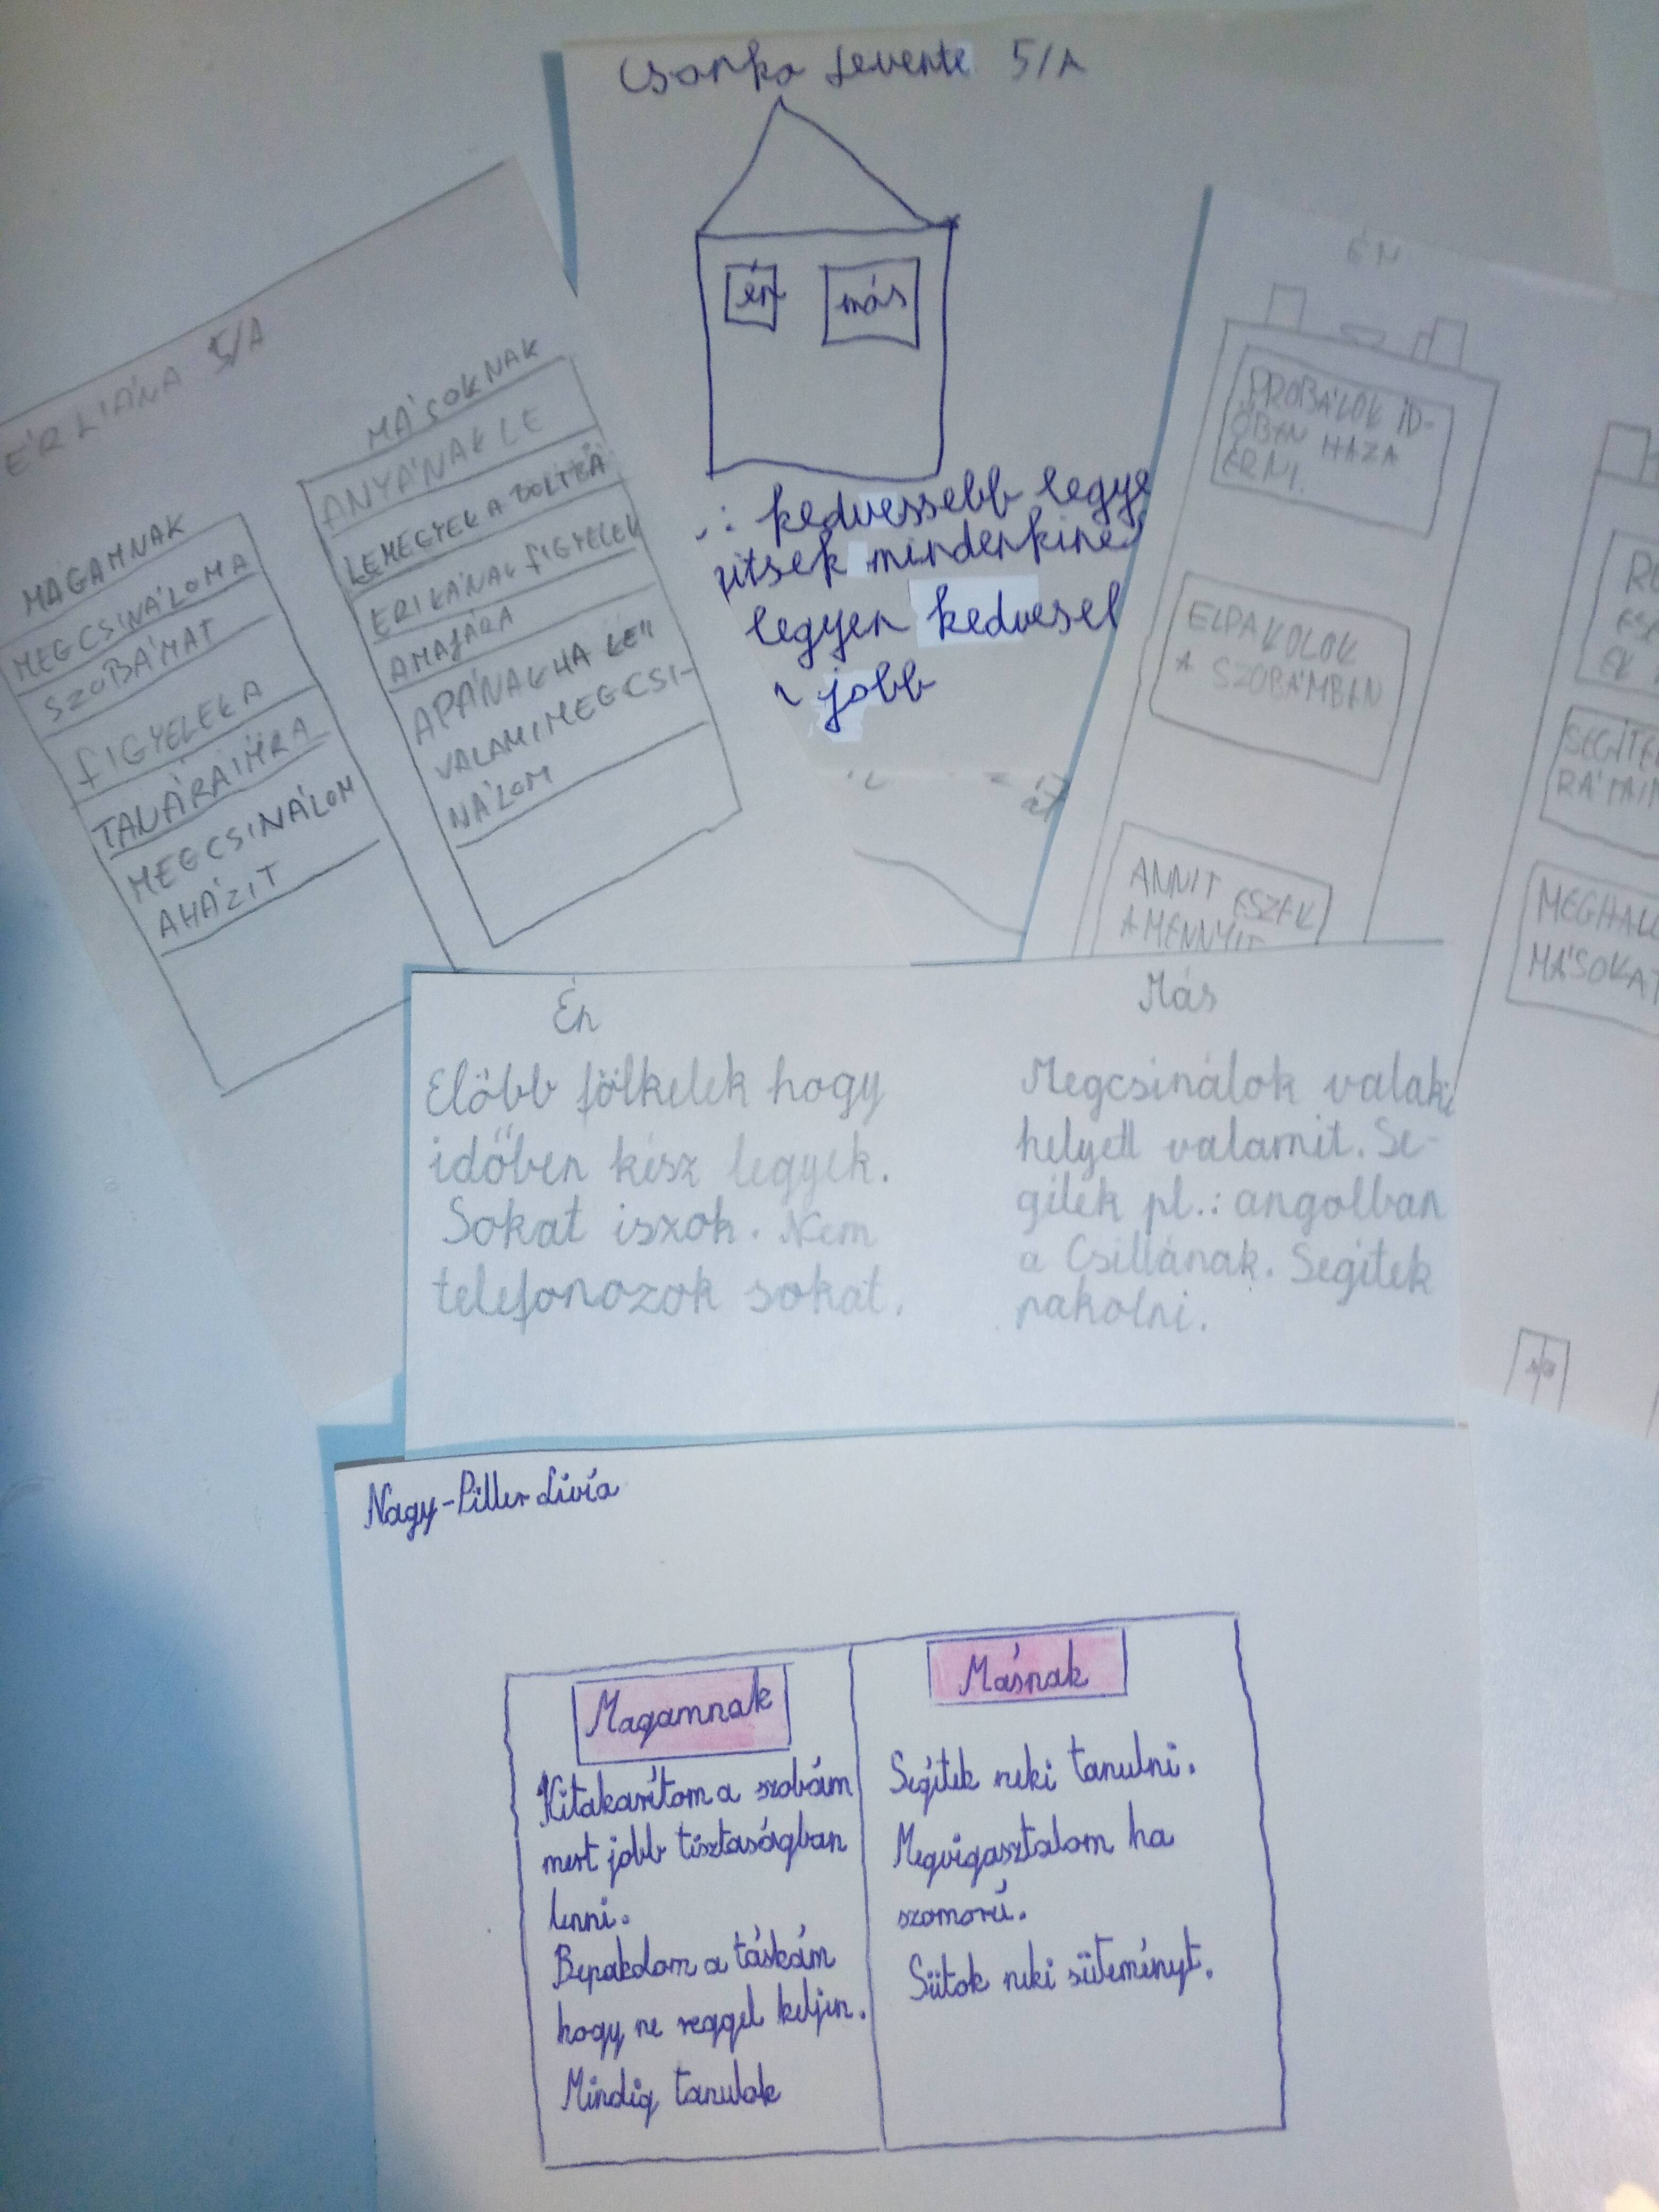 Csonka Levente 5/A
én
más
kedvessebb legye
itsek mindenkine
legyen kedvesel
jobb
ÉR LIÁNA 5/A
MAGAMNAK
MEGCSINÁLOM A
SZOBÁMAT
FIGYELEK A
TANÁRAIMRA
MEGCSINÁLOM
A HÁZIT
MÁSOKNAK
ANYÁNAK LE
LEMEGYEK A BOLTBA
ERIKÁNAK FIGYELEK
A MAJÁRA
APÁNAK HA KELL
VALAMI MEGCSI-
NÁLOM
ÉN
PROBÁLOK ID-
ŐBEN HAZA
ÉRNI.
ELPAKOLOK
A SZOBÁMBAN
ANNIT ESZEK
AMENNYIT
SEGÍTE
MEGHALL
MÁSOKAT
Én
Előbb fölkelek hogy
időben kész legyek.
Sokat iszok. Nem
telefonozok sokat.
Más
Megcsinálok valaki
helyett valamit. Se-
gítek pl.: angolban
a Csillának. Segítek
pakolni.
Nagy-Piller Lívia
Magamnak
Kitakarítom a szobám
mert jobb tisztaságban
lenni.
Bepakolom a táskám
hogy ne reggel keljen.
Mindig tanulok
Másnak
Segítek neki tanulni.
Megvigasztalom ha
szomorú.
Sütok neki süteményt.